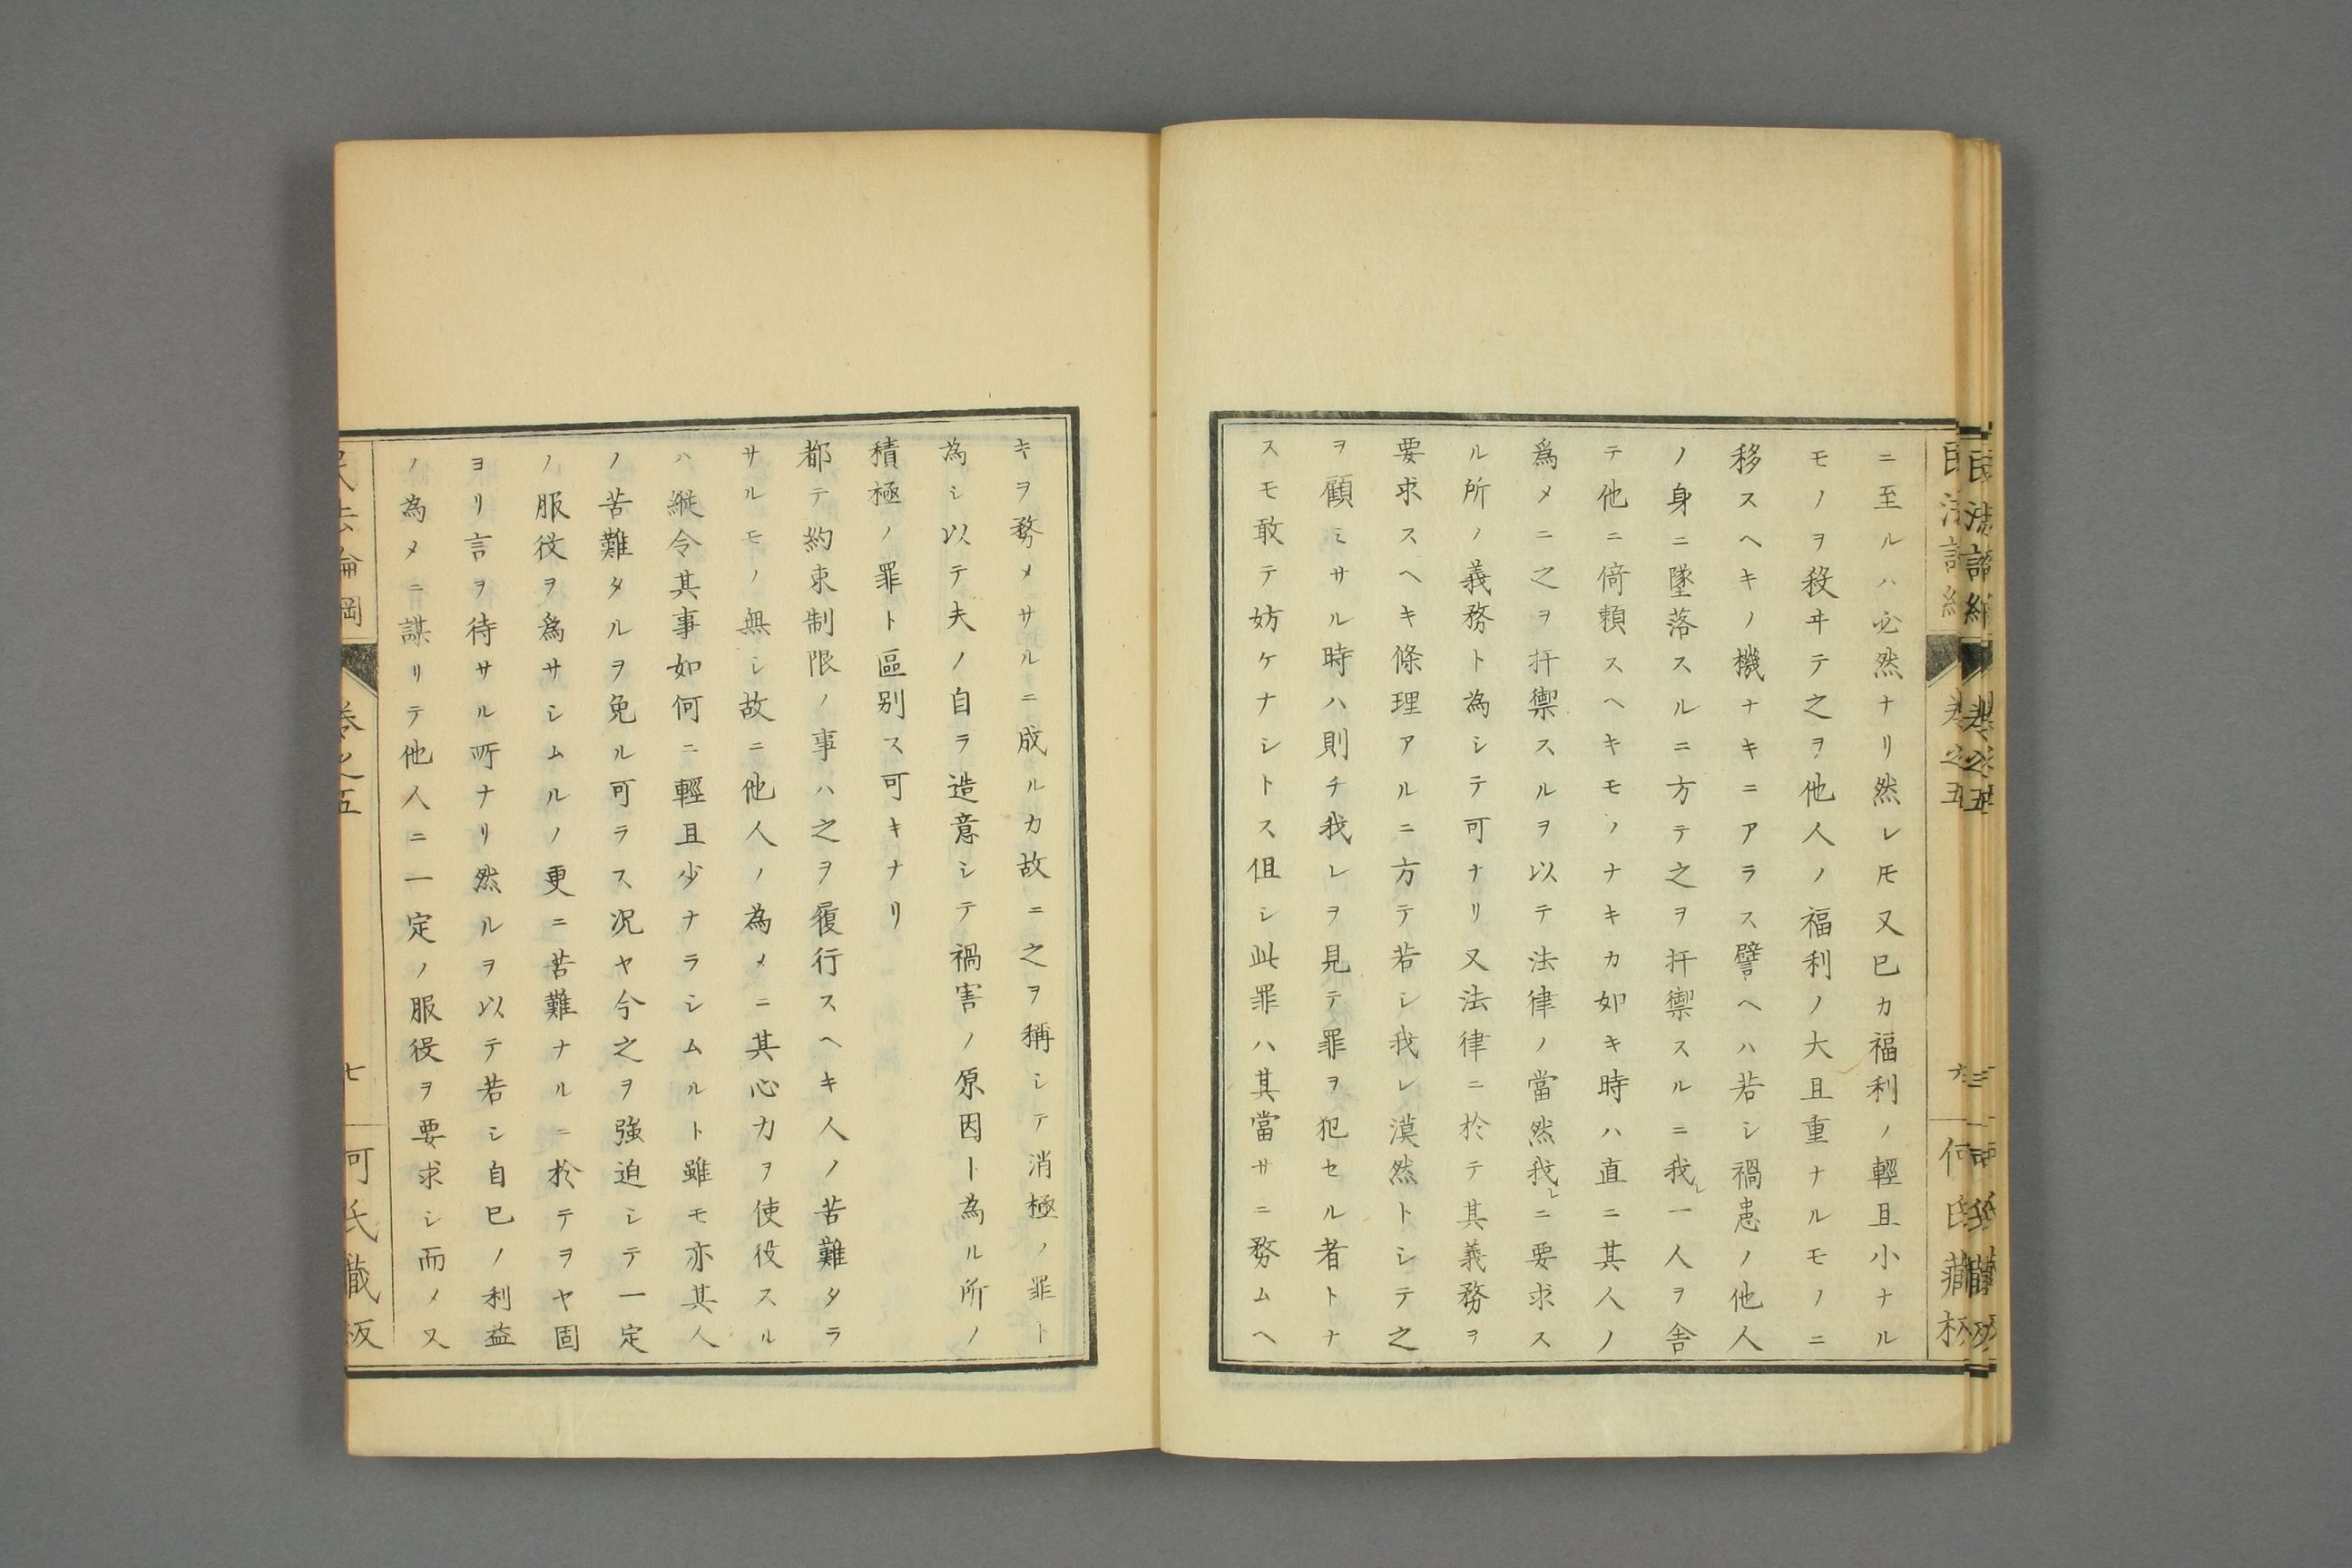 ニ至ルハ必然ナリ然レ𪜈又巳カ福利ノ輕且小ナル
モノヲ殺ヰテ之ヲ他人ノ福利ノ大且重ナルモノニ
移スヘキノ機ナキニアラス譬ヘハ若シ禍患ノ他人
ノ身ニ墜落スルニ方テ之ヲ扞禦スルニ我レ一人ヲ舎
テ他ニ倚頼スヘキモノナキカ如キ時ハ直ニ其人ノ
爲メニ之ヲ扞禦スルヲ以テ法律ノ當然我レニ要求ス
ル所ノ義務ト為シテ可ナリ又法律ニ於テ其義務ヲ
要求スヘキ條理アルニ方テ若シ我レ漠然トシテ之
ヲ顧ミサル時ハ則チ我レヲ見テ罪ヲ犯セル者トナ
スモ敢テ妨ケナシトス但シ此罪ハ其當サニ務ムヘ
キヲ務メサルニ成ルカ故ニ之ヲ稱シテ消極ノ罪ト
為シ以テ夫ノ自ラ造意シテ禍害ノ原因ト為ル所ノ
積極ノ罪ト區别ス可キナリ
都テ約束制限ノ事ハ之ヲ履行スヘキ人ノ苦難タラ
サルモノ無シ故ニ他人ノ為メニ其心力ヲ使役スル
ハ縦令其事如何ニ輕且少ナラシムルト雖モ亦其人
ノ苦難タルヲ免ル可ラス况ヤ今之ヲ強迫シテ一定
ノ服役ヲ爲サシムルノ更ニ苦難ナルニ於テヲヤ固
ヨリ言ヲ待サル所ナリ然ルヲ以テ若シ自巳ノ利益
ノ為メニ謀リテ他人ニ一定ノ服役ヲ要求シ而メ又
民法論綱 卷之五 七 何氏藏板